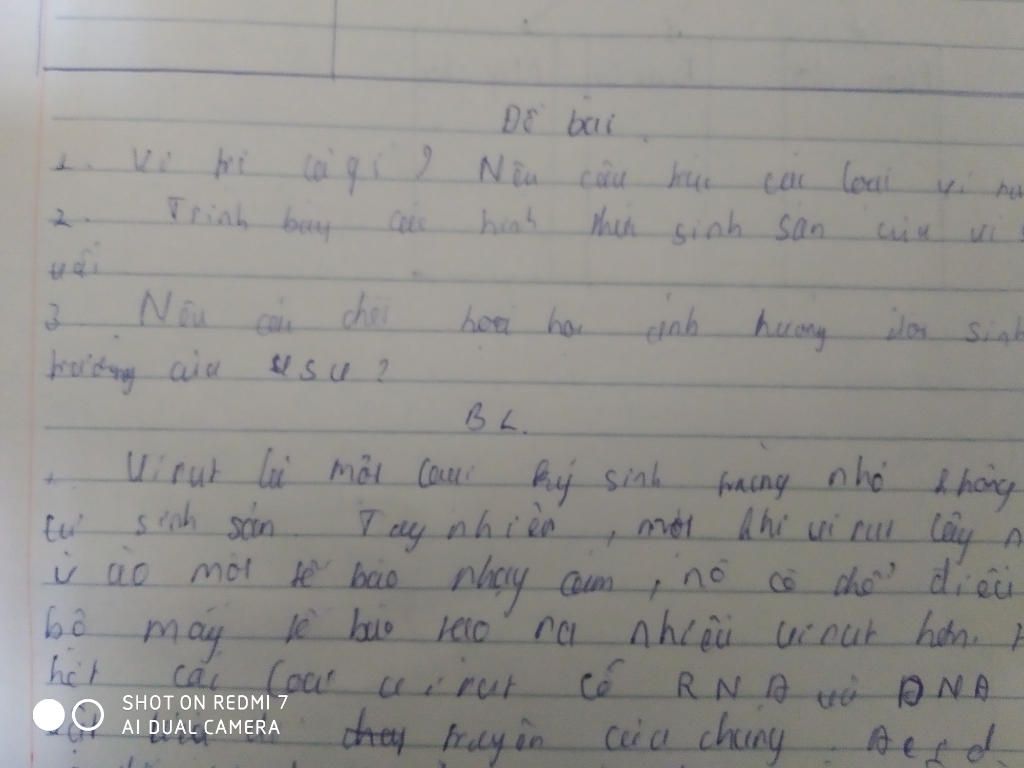 Đề bài
1. Vi rút là gì? Nêu cấu trúc các loại vi
2. Trình bày các hình thức sinh sản của vi
vật
3 Nêu các chất hoá học ảnh hưởng đến sinh
trưởng của VSV?
BL.
1. Virut là một loại ký sinh trùng nhỏ không
tự sinh sản. Tay nhiên, một khi virut lây
vào một tế bào nhạy cảm, nó có thể điều
bộ máy tế bào tạo ra nhiều virut hơn.
hết các loại virut có RNA và DNA
truyền của chúng.
SHOT ON REDMI 7
AI DUAL CAMERA